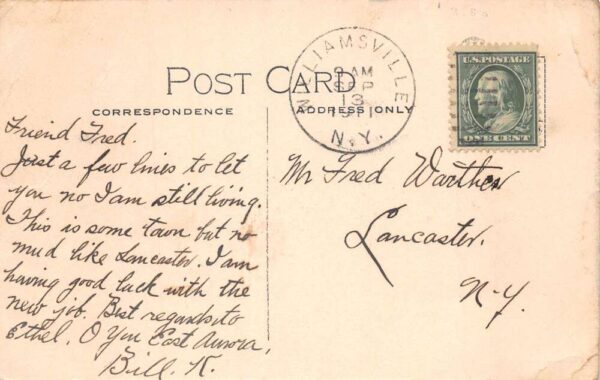 POST CARD
CORRESPONDENCE
ADDRESS ONLY
WILLIAMSVILLE
9 AM
SEP
13
1911
N.Y.
U.S. POSTAGE
ONE CENT
Friend Fred.
Just a few lines to let
you no I am still living.
This is some town but no
mud like Lancaster. I am
having good luck with the
new job. Best regards to
Ethel. O You East Aurora.
Bill. K.
Mr Fred Warther
Lancaster.
N-y.